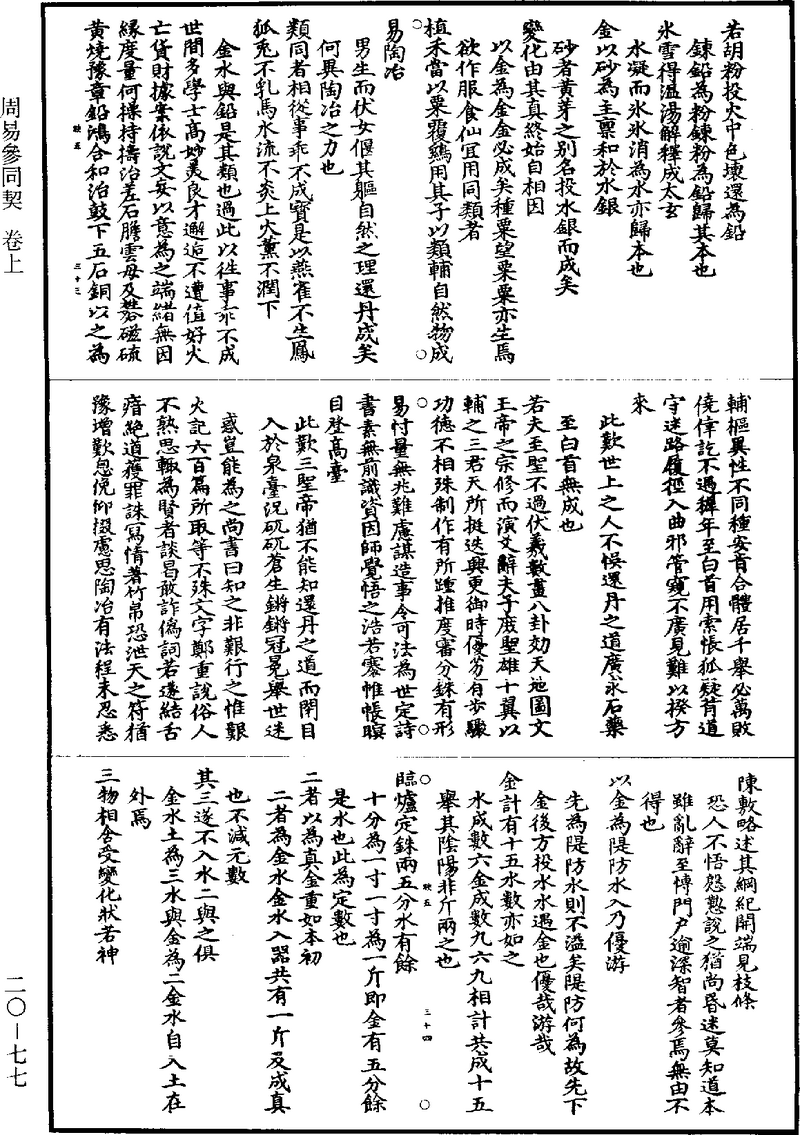 若胡粉投火中色壞還為鉛
鍊鉛為粉鍊粉為鉛歸其本也
氷雪得溫湯解釋成太玄
水凝而氷氷消為水亦歸本也
金以砂為主稟和於水銀
砂者黃芽之别名投水銀而成矣
變化由其真終始自相因
以金為金金必成矣種粟望粟粟亦生焉
欲作服食仙宜用同類者
植禾當以粟覆鷄用其子以類輔自然物成
易陶冶
男生而伏女偃其軀自然之理還丹成矣
何異陶冶之力也
類同者相從事乖不成寶是以燕雀不生鳳
狐兎不乳馬水流不炎上火薰不潤下
金水與鉛是其類也過此以往事乖不成
世間多學士高妙美良才邂逅不遭值好火
亡貨財據案依説文妄以意為之端緒無因
緣度量何操持擣治羗石膽雲母及礬磁硫
黃燒豫章鉛澒合和治鼓下五石銅以之為
映五
三十三
輔樞異性不同種安肯合體居千舉必萬敗
僥倖訖不遇稺年至白首用索悵狐疑背道
守迷路履徑入曲邪管窺不廣見難以揆方
來
此歎世上之人不悞還丹之道廣求石藥
至白首無成也
若夫至聖不過伏羲數畫八卦効天地圖文
王帝之宗修而演爻辭夫子庻聖雄十翼以
輔之三君天所挺迭興更御時優劣有步驟
功德不相殊制作有所踵推度審分銖有形
易忖量無兆難慮謀造事令可法為世定詩
書素無前識資因師覺悟之浩若褰帷帳瞑
目登高臺
此歎三聖帝猶不能知還丹之道而閉目
入於泉臺况矹矹蒼生鏘鏘冠冕舉世迷
惑豈能為之尚書曰知之非艱行之惟艱
火記六百篇所取等不殊文字鄭重説俗人
不熟思輙為賢者談曷敢詐偽詞若遂結舌
瘖絶道獲罪誅寫情著竹帛恐泄天之符猶
豫增歎息俛仰掇慮思陶冶有法程未忍悉
陳敷略述其綱紀開端見枝條
恐人不悟慇懃説之猶尚昏迷莫知道本
雖亂辭至慱門戸逾深智者參焉無由不
得也
以金為隄防水入乃優游
先為隄防水則不溢矣隄防何為故先下
金後方投水水遇金也優哉游哉
金計有十五水數亦如之
水成數六金成數九六九相計共成十五
舉其陰陽非斤兩之也
映五
三十四
臨爐定銖兩五分水有餘
十分為一寸一寸為一斤即金有五分餘
是水也此為定數也
二者以為真金重如本初
二者為金水金水入噐共有一斤及成真
也不減元數
其三遂不入水二與之俱
金水土為三水與金為二金水自入土在
外焉
三物相舍受變化狀若神
周易參同契 卷上
二〇—七七